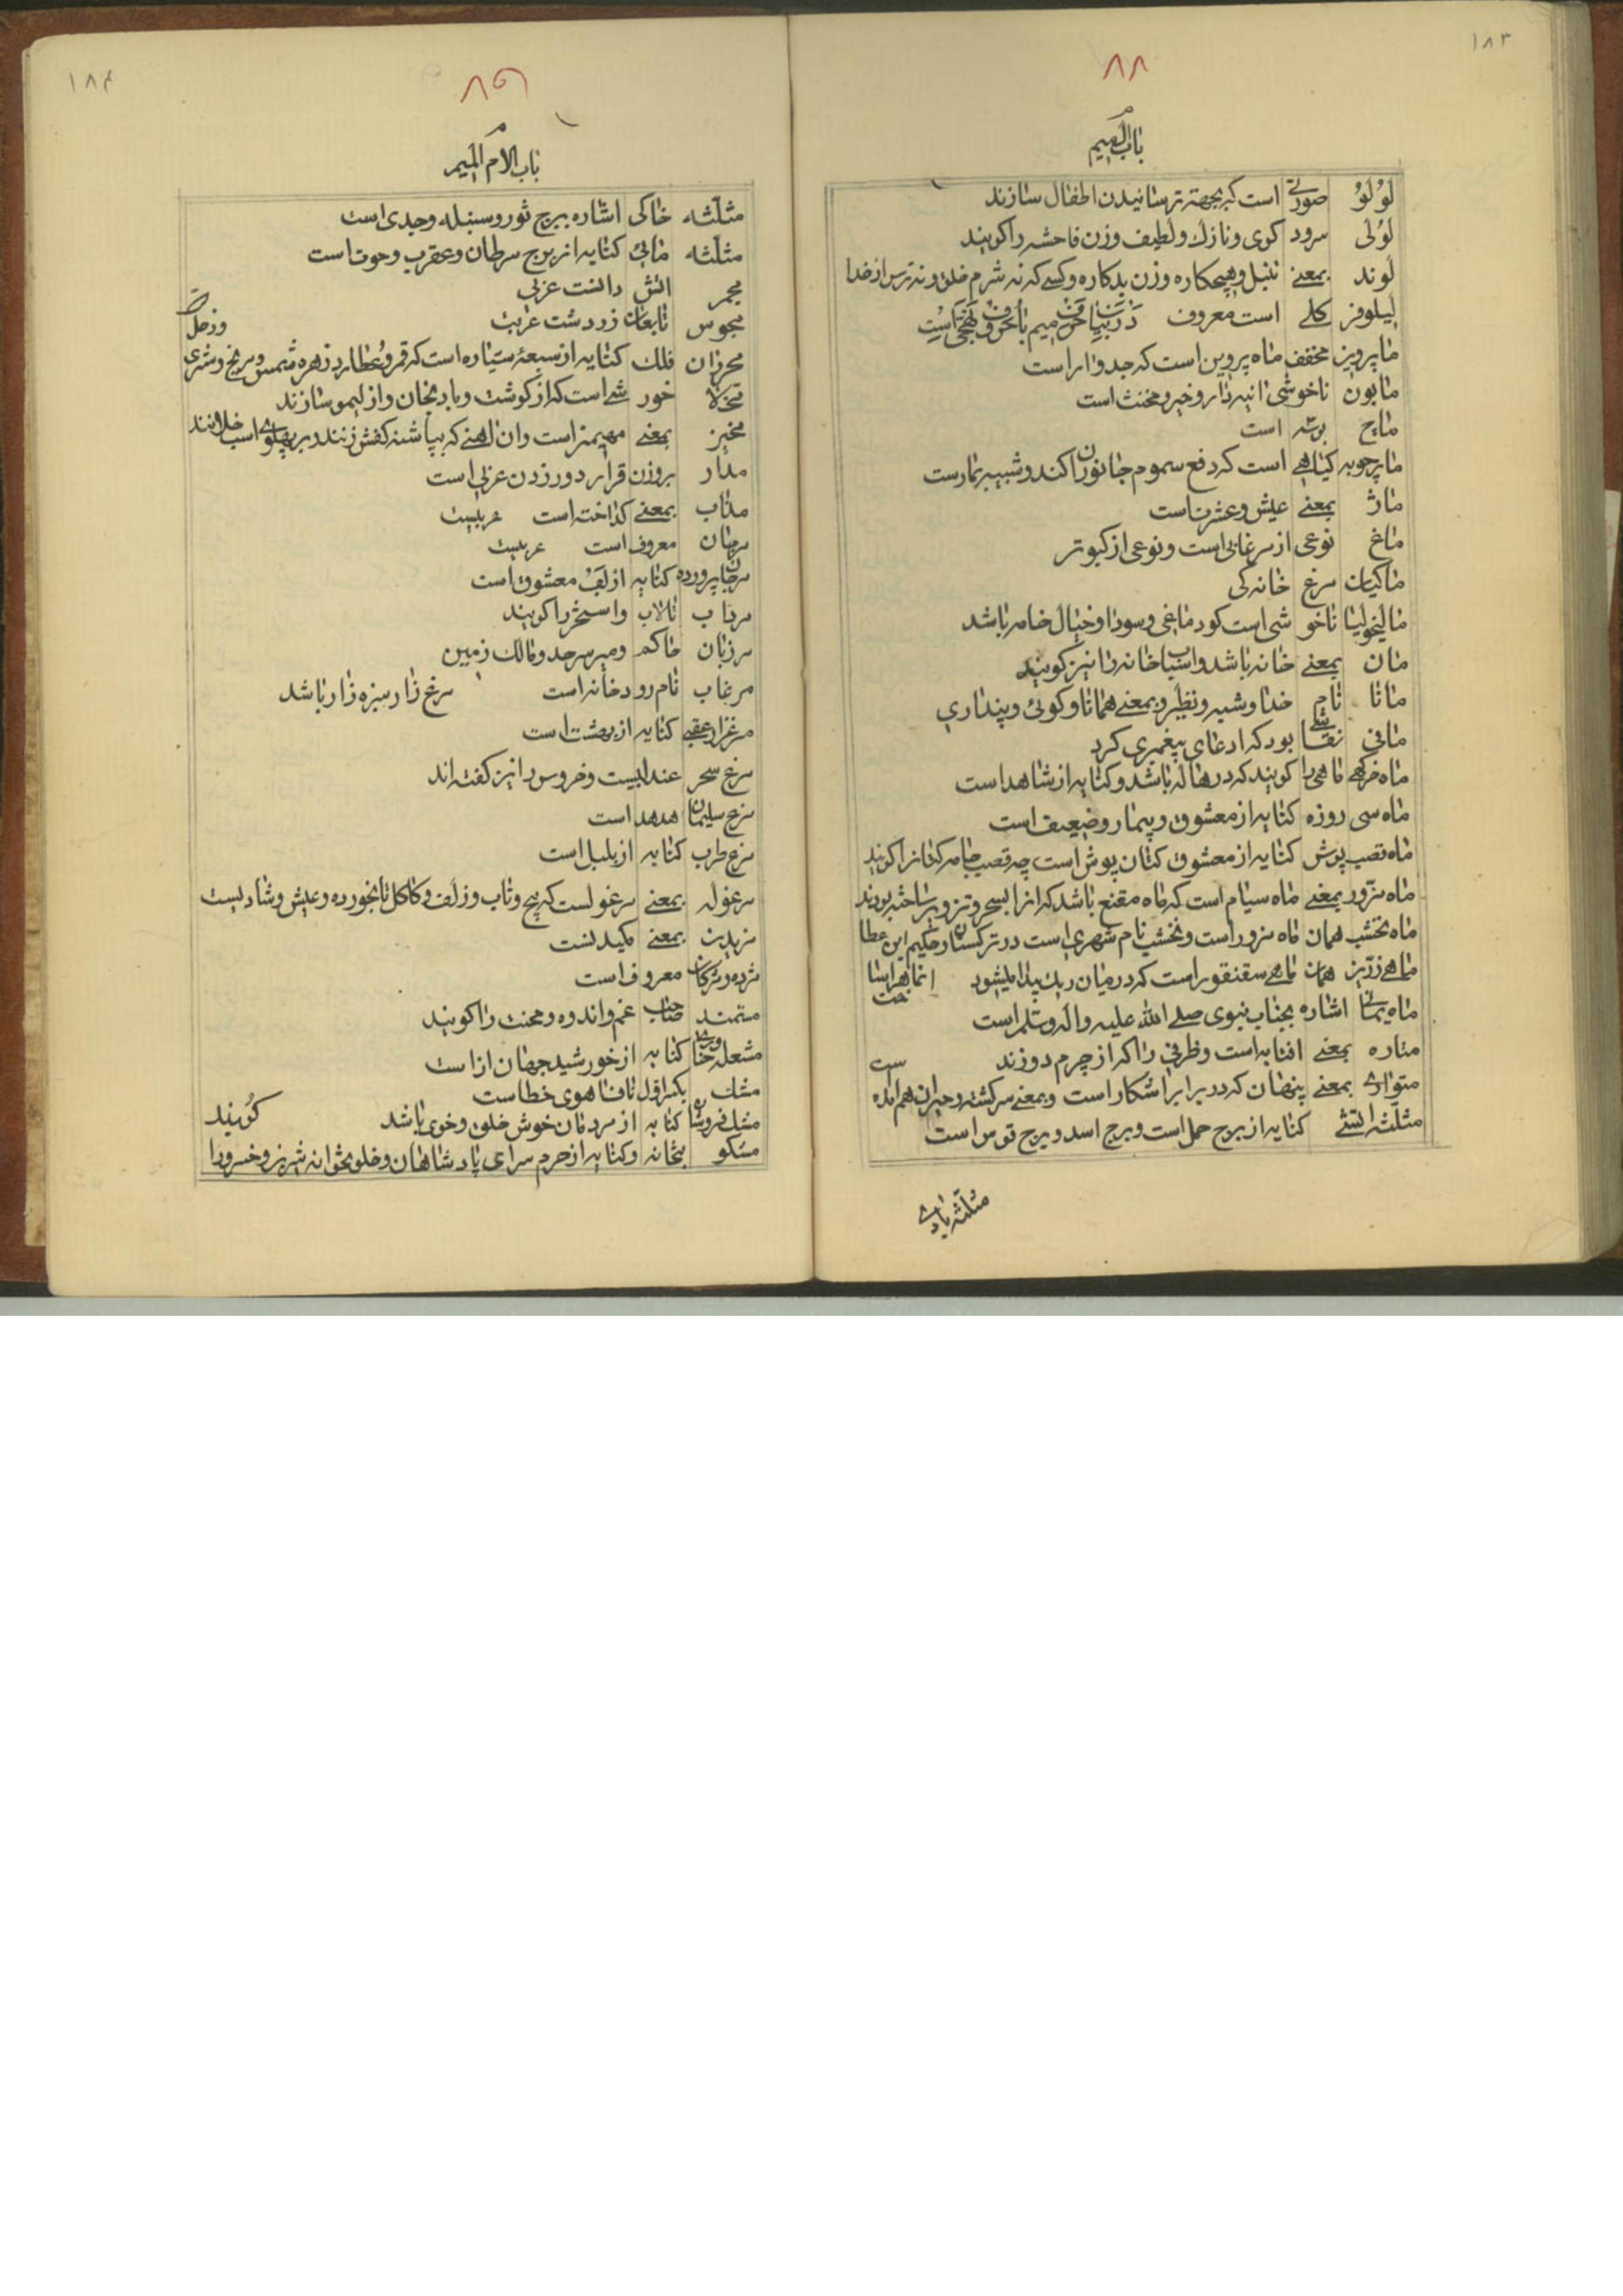 ۱۸۳
۸۸
باب المیم
لولو صورتی است که بجهة ترسانیدن اطفال سازند
لولی سرود کوی و نازک و لطیف و زن فاحشه را کویند
لوند بمعنی تنبل و هیچکاره و زن بدکاره و کسی که نه شرم خلق و نه ترس از خدا
لیلوفر کلی است معروف در بیان حرف میم با حروف تهجی است
ماپروین مخفف ماه پروین است که جدوار است
مابون ناخوشی و مخنث است
مایح است
مارچوبه کیاهی است که دفع سموم جانوران کند و شبیه بمارست
ماز بمعنی عیش و عشرت است
ماغ نوعی از مرغابی است و نوعی از کبوتر
ماکیان مرغ خانه کی
مالیخولیا ناخوشی است کو دماغی و سودا و خیال خام باشد
مان بمعنی خانه باشد و اسباب خانه را نیز کویند
مانا نام خدا و شبیه و نظیر و بمعنی همانا و کوئی و پنداری
مانی نقاشی بود که ادعای پیغمبری کرد
ماه خرکهی ماهی را کویند که در هاله باشد و کنایه از شاهد است
ماه سی روزه کنایه از معشوق و بیمار و ضعیف است
ماه قصب پوش کنایه از معشوق کتان پوش است چه قصب جامه کتانرا کویند
ماه مزور بمعنی ماه سیام است که ماه مقنع باشد که انرا بسحر و تزویر ساخته بودند
ماه نخشب همان ماه مزور است و نخشب نام شهری است در ترکستان و حکیم ابن عطا
ماهی زرین همان ماهی سقنقور است که در میان ریک پیدا میشود انماه را ساخت
ماه یمانی اشاره بجناب نبوی صلی الله علیه و اله و سلم است
متاره بمعنی افتابه است و ظرفی را که از چرم دوزند
متواری بمعنی پنهان که در برابر اشکار است و بمعنی سرکشته و حیران هم امده است
مثلثه اتشی کنایه از برج حمل است و برج اسد و برج قوس است
مثلثه بادی
۱۸۴
۸۹
باب الام المیم
مثلثه خاکی اشاره ببرج ثور و سنبله و جدی است
مثلثه مائی کنایه از برج سرطان و عقرب و حوت است
مجمر اتش دانست عربی
مجوس تابعان زردشت عربیت
محرران فلک کنایه از سبعهٔ سیاره است که قمر و عطارد و زهره و شمس و مریخ و مشتری و زحل
خور شی است که از کوشت و بادنجان و از لیمو سازند
مخیز بمعنی مهمیز است و ان اهنی که بپاشنه کفش زنند و بر پهلوی اسب خلانند
مدار بروزن قرار دور زدن عربی است
مذاب بمعنی کداخته است عربیست
مرجان معروف است عربیست
مرجان پرورده کنایه از لب معشوق است
مرداب تالاب و اسخر را کویند
مرزبان حاکم و میر سرحد و مالک زمین
مرغاب نام رودخانه است مرغ زار سبزه زار باشد
مرغزار عقبی کنایه از بهشت است
مرغ سحر عندلیبست و خروس را نیز کفته اند
مرغ سلیمان هدهد است
مرغ طرب کنایه از بلبل است
مرغوله بمعنی مرغولست که پیچ و تاب و زلف و کاکل تابخورده و عیش و شادیست
مزیدن بمعنی مکیدنست
مژه و مژکان معروف است
مستمند صاحب غم و اندوه و محنت را کویند
مشعله خاوری کنایه از خورشید جهان اراست
مشک بکسر اول ناف اهوی خطاست
مشک فروشان کنایه از مردمان خوش خلق و خوی باشد
مشکو بتخانه و کنایه از حرم سرای پادشاهان و خلوتخانه شیرین و خسرو را کویند